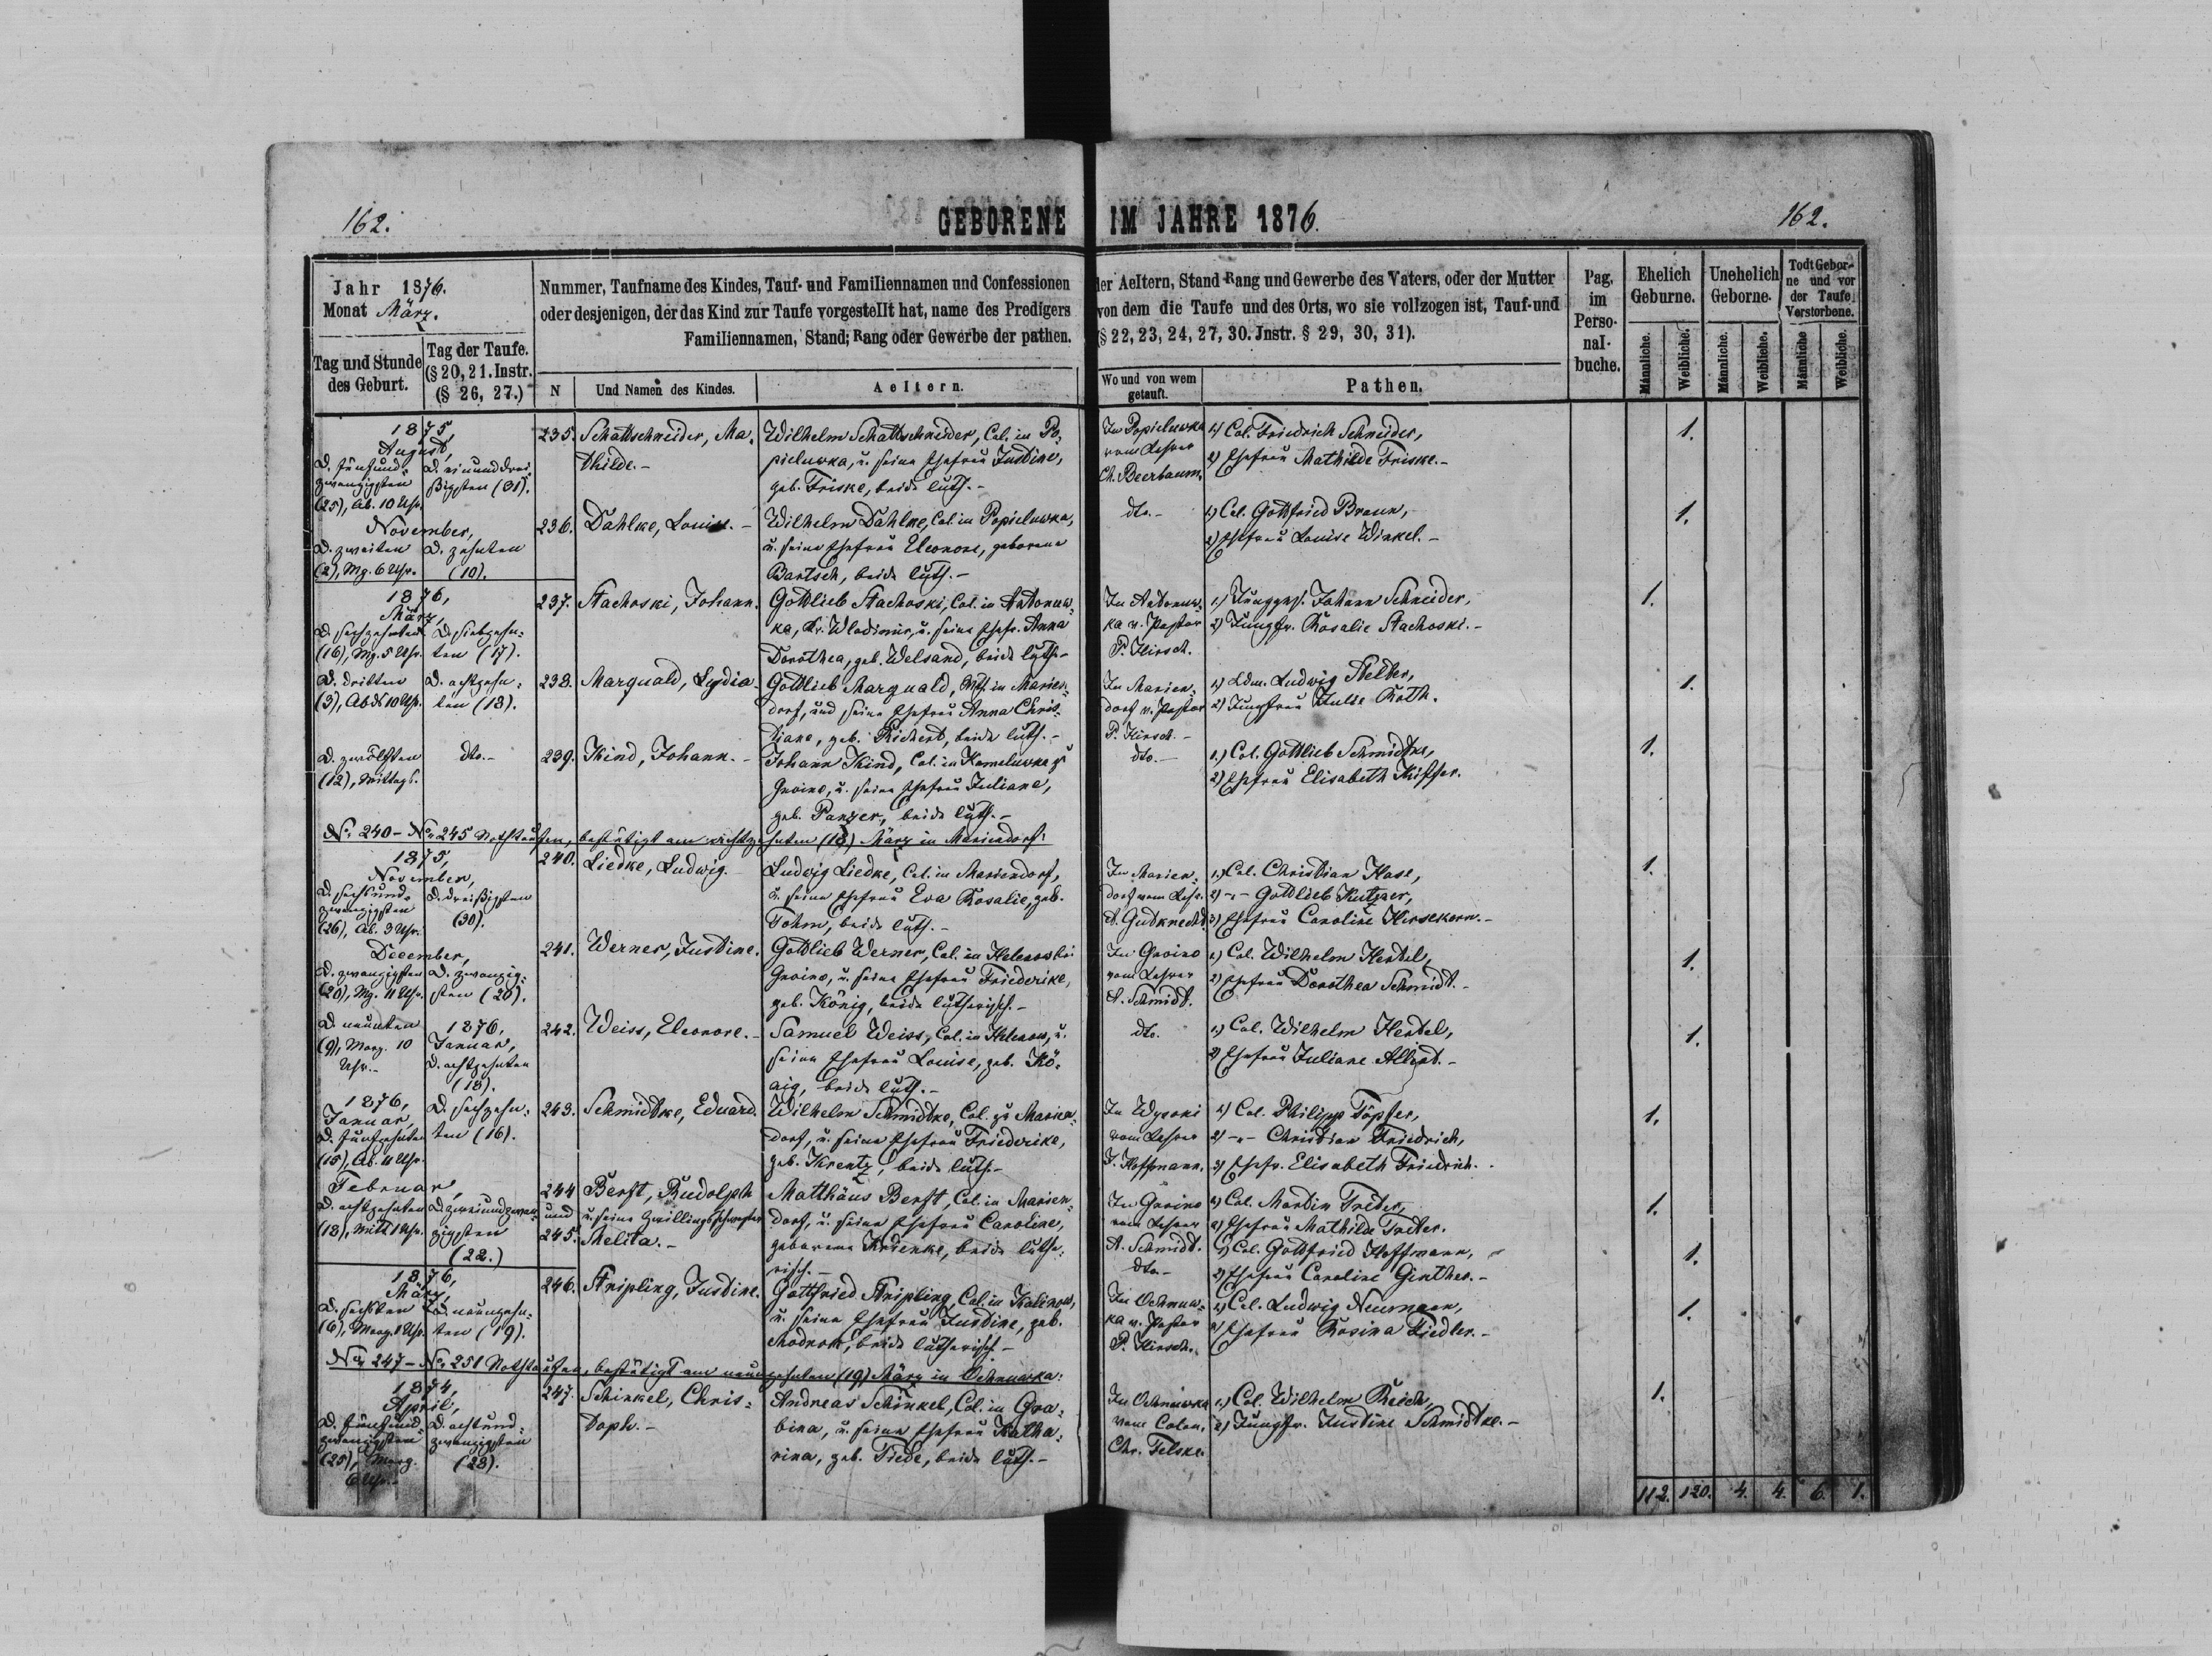 162.
GEBORENE IM JAHRE 1876.
162.
Jahr 1876.
Monat März.
Tag und Stunde des Geburt.
Tag der Taufe.
(§ 20, 21. Instr.
(§ 26, 27.)
Nummer, Taufname des Kindes, Tauf- und Familiennamen und Confessionen
oder desjenigen, der das Kind zur Taufe vorgestellt hat, name des Predigers
Familiennamen, Stand; Rang oder Gewerbe der pathen.
N
Und Namen des Kindes.
Aeltern.
der Aeltern, Stand Rang und Gewerbe des Vaters, oder der Mutter
von dem die Taufe und des Orts, wo sie vollzogen ist, Tauf-und
(§ 22, 23, 24, 27, 30. Jnstr. § 29, 30, 31).
Wo und von wem
getauft.
Pathen.
Pag,
im
Perso-
nal-
buche.
Ehelich
Geburne.
Unehelich
Geborne.
Todt Gebor-
ne und vor
der Taufe
Verstorbene.
Männliche.
Weibliche.
Männliche.
Weibliche.
Männliche
Weibliche.
1875
August,
D. fünfund-
zwanzigsten
(25), Ab. 10 Uhr.
D. einunddrei-
ßigsten (31).
235.
Schattschneider, Ma-
thilde.-
Wilhelm Schattschneider, Col. in Po-
pieluwka, u. seine Ehefrau Justine,
geb. Friske, beide luth.-
In Popieluwka
vom Lehrer
Ch. Beerbaum.
1) Col. Friedrich Schneider,
2) Ehefrau Mathilde Friske.-
1.
November,
D. zweiten
(2), Mg. 6 Uhr.
D. zehnten
(10).
236.
Dahlke, Louise.-
Wilhelm Dahlke, Col. in Popieluwka,
u. seine Ehefrau Eleonore, geborene
Bartsch, beide luth.-
dto.-
1) Col. Gottfried Braun,
2) Ehefrau Louise Winkel.-
1.
1876,
März,
D. sechzehnten
(16), Mg. 5 Uhr.
D. siebzehn-
ten (17).
237.
Stachoski, Johann.
Gottlieb Stachoski, Col. in Antonuw-
ka, Kr. Wlodimir, u. seine Ehefr. Anna
Dorothea, geb. Welsand, beide luth.-
In Antonuw-
ka v. Pastor
P. Hirsch.
1) Junggs. Johann Schneider,
2) Jungfr. Rosalie Stachoski.-
1.
D. dritten
(3), Abds 10 Uhr.
D. achtzehn-
ten (18).
238.
Marquald, Lydia.
Gottlieb Marquald, in Marien-
dorf, und seine Ehefrau Anna Chris-
tiane, geb. Richert, beide luth.-
In Marien-
dorf v. Pastor
P. Hirsch.-
1) Ludwig Stelter,
2) Jungfrau Julie Roth.
1.
D. zwölften
(12), Mittags.
dto.-
239.
Kind, Johann.-
Johann Kind, Col. in Komeluwka zu
Gnoino, u. seine Ehefrau Juliane,
geb. Panzer, beide luth.-
dto.-
1.) Col. Gottlieb Schmidtke,
2) Ehefrau Elisabeth
1.
No 240 - No 245 Nothtaufen, bestätigt am achtzehnten (18) März in Mariendorf:
1875,
November,
D. sechsund-
zwanzigsten
(26), Ab. 3 Uhr.
D. dreißigsten
(30).
240.
Liedke, Ludwig.-
Ludwig Liedke, Col. in Mariendorf,
u. seine Ehefrau Eva Rosalie, geb.
Tohm, beide luth.-
In Marien-
dorf vom Lehr.
A. Gutknecht.
1.) Col. Christian Hase,
2) -"- Gottlieb Kutzner,
3) Ehefrau Caroline Hirsekorn.-
1.
December,
D. zwanzigsten
(20), Mg. 11 Uhr.
D. zwanzig-
sten (20).
241.
Werner, Justine.
Gottlieb Werner, Col. in Helenow bei
Gnoino, u. seine Ehefrau Friederike,
geb. König, beide lutherisch.-
In Gnoino
vom Lehrer
A. Schmidt.
1) Col. Wilhelm Hertel,
2) Ehefrau Dorothea Schmidt.-
1.
D. neunten
(9), Morg. 10
Uhr.-
1876,
Januar,
D. achtzehnten
(18).
242.
Weiss, Eleonore.-
Samuel Weiss, Col. in Helenow, u.
seine Ehefrau Louise, geb. Kö-
nig, beide luth.-
dto.
1) Col. Wilhelm Hertel,
2) Ehefrau Juliane
1.
1876,
Januar,
D. fünfzehnten
(15), Ab. 11 Uhr.
D. sechzehn-
ten (16).
243.
Schmidtke, Eduard.
Wilhelm Schmidtke, Col. zu Marien-
dorf, u. seine Ehefrau Friederike,
geb. Krentz, beide luth.-
In Wysoki
vom Lehrer
F. Hoffmann.
1) Col. Philipp Töpfer,
2) -"- Christian Friedrich,
3) Ehefr. Elisabeth Friedrich.
1.
Februar,
D. achtzehnten
(18), Mitt. 1 Uhr.
D. zweiundzwan-
zigsten
(22.)
244
und
245.
Berft, Rudolph
u. seine Zwillingsschwester
Melita.-
Matthäus Berft, Col. in Marien-
dorf, u. seine Ehefrau Caroline,
geborene Krienke, beide luthe-
risch.-
In Gnoino
vom Lehrer
A. Schmidt.
dto.-
1) Col. Martin Treter,
2) Ehefrau Mathilde Treter.
1) Col. Gottfried Hoffmann,
2) Ehefrau Caroline Ginther.-
1.
1.
1876,
März,
D. sechsten
(6), Morg. 1 Uhr.
D. neunzehn-
ten (19).
246.
Stripling, Justine.
Gottfried Stripling, Col. in Kalinow,
u. seine Ehefrau Justine, geb.
Modrok, beide lutherisch.-
In Ochnuw-
ka v. Pastor
P. Hirsch.
1) Col. Ludwig Neumann,
2) Ehefrau Rosina Fiedler.-
1.
No 247 - No 251 Nothtaufen, bestätigt am neunzehnten (19) März in Ochnuwka:
1874,
April,
D. fünfund-
zwanzigsten
(25), Morg.
6 Uhr.-
D. achtund-
zwanzigsten
(28).
247.
Schinkel, Chris-
toph.-
Andreas Schinkel, Col. in Gra-
bina, u. seine Ehefrau Katha-
rina, geb. Tiede, beide luth.-
In Ochnuwka
vom Colon.
Chr. Felske.
1.) Col. Wilhelm Reich,
2) Jungfr. Justine Schmidtke.-
1.
112. 120. 4. 4. 6. 1.